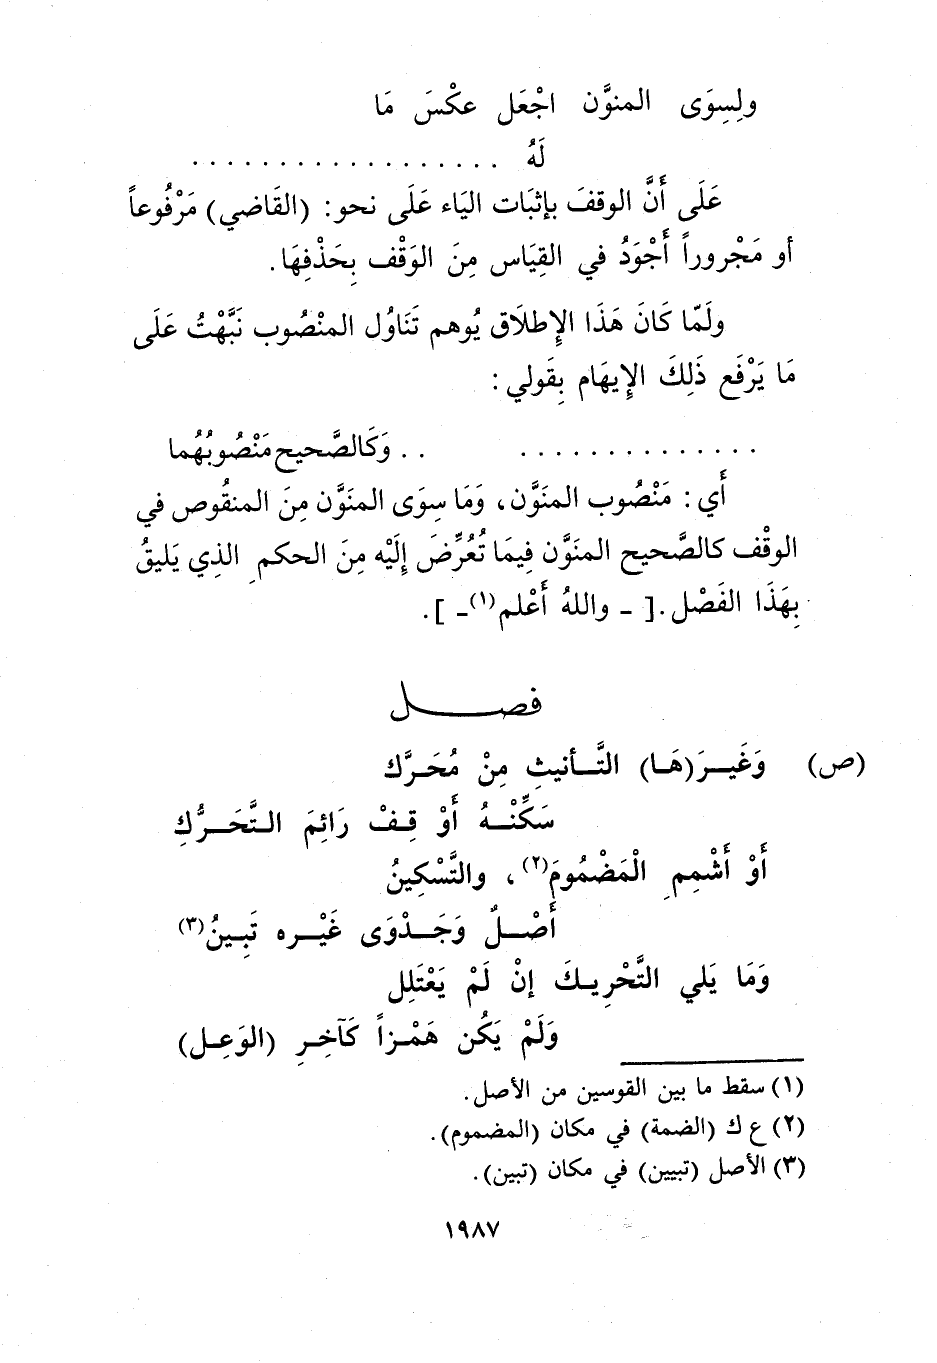 ولِسِوَى المنوَّن اجْعَل عكْسَ مَا
لَهُ . . . . . . . . . . . . . . . . . .
عَلَى أَنَّ الوقفَ بإثبَات اليَاء عَلَى نحو: (القَاضي) مَرْفُوعاً
أو مَجْروراً أَجْوَدُ في القِيَاس مِنَ الوَقْف بِحَذْفِهَا.
ولَمّا كَانَ هَذَا الإِطلَاق يُوهم تَنَاوُل المنْصُوب نَبَّهْتُ عَلَى
مَا يَرْفَع ذَلِكَ الإِيهَام بِقَولي:
. . . . . . . . . . . . . . . . وَكَالصَّحيح مَنْصُوبُهُما
أَي: مَنْصُوب المنَوَّن، وَمَا سِوَى المنَوَّن مِنَ المنقُوص في
الوقْف كالصَّحيح المنَوَّن فِيمَا تُعُرِّضَ إِلَيْه مِنَ الحكم الذِي يَليقُ
بِهَذَا الفَصْل. [ - واللهُ أَعْلم(١) - ].
فصـــــل
(ص) وَغَيــرَ(هَــا) التَّــأنيثِ مِنْ مُحَــرَّك
سَكِّنْــهُ أَوْ قِــفْ رَائِمَ الـتَّحَــرُّكِ
أَوْ أَشْمِمِ الْمَضْمُومَ(٢)، والتَّسْكِينُ
أَصْــلٌ وَجَــدْوَى غَيْــره تَبِيـنُ(٣)
وَمَا يَلي التَّحْرِيـكَ إنْ لَمْ يَعْتَلِل
وَلَمْ يَكُن هَمْــزاً كَآخِــرِ (الوَعِــل)
(١) سقط ما بين القوسين من الأصل.
(٢) ع ك (الضمة) في مكان (المضموم).
(٣) الأصل (تبيين) في مكان (تبين).
١٩٨٧